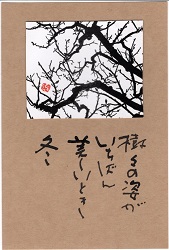 樹々の姿が
いちばん
美しいとき
冬